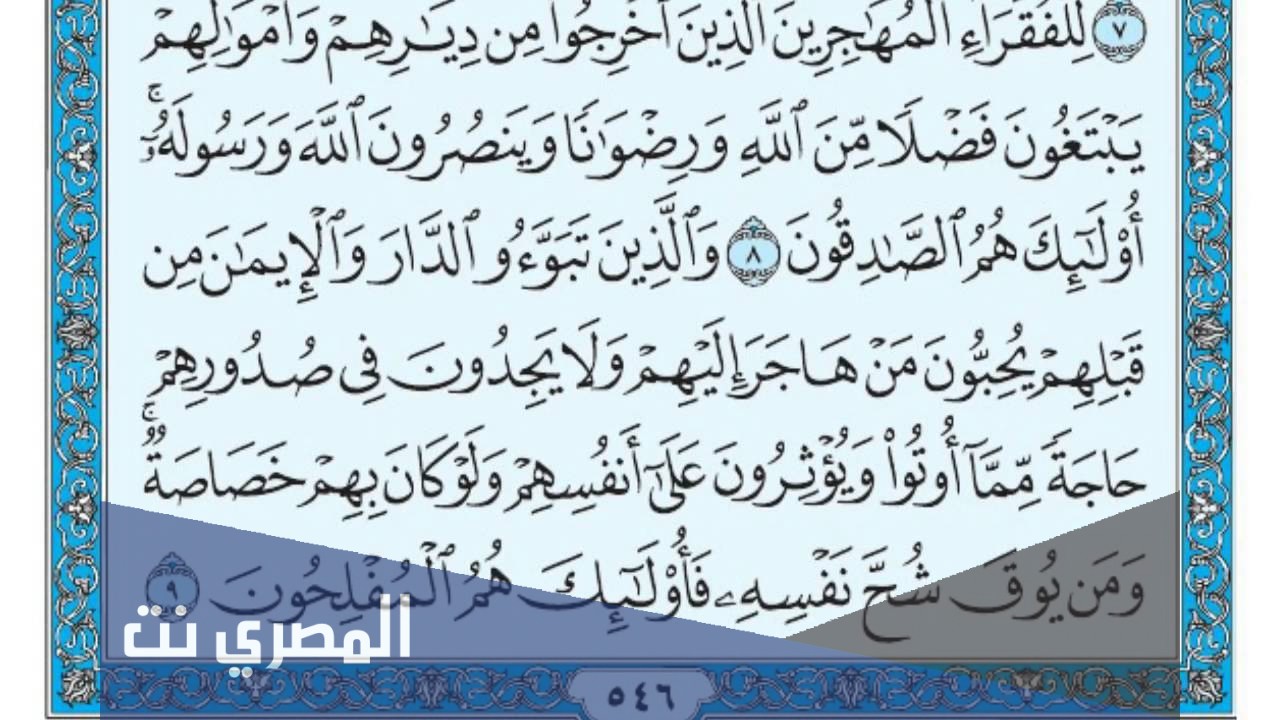 ٧ لِلْفُقَرَاءِ الْمُهَاجِرِينَ الَّذِينَ أُخْرِجُوا مِن دِيَارِهِمْ وَأَمْوَالِهِمْ
يَبْتَغُونَ فَضْلًا مِّنَ ٱللَّهِ وَرِضْوَٰنًا وَيَنصُرُونَ ٱللَّهَ وَرَسُولَهُۥٓۚ
أُوْلَـٰٓئِكَ هُمُ ٱلصَّـٰدِقُونَ ٨ وَٱلَّذِينَ تَبَوَّءُو ٱلدَّارَ وَٱلْإِيمَـٰنَ مِن
قَبْلِهِمْ يُحِبُّونَ مَنْ هَاجَرَ إِلَيْهِمْ وَلَا يَجِدُونَ فِى صُدُورِهِمْ
حَاجَةً مِّمَّآ أُوتُوا۟ وَيُؤْثِرُونَ عَلَىٰٓ أَنفُسِهِمْ وَلَوْ كَانَ بِهِمْ خَصَاصَةٌۚ
وَمَن يُوقَ شُحَّ نَفْسِهِۦ فَأُو۟لَـٰٓئِكَ هُمُ ٱلْمُفْلِحُونَ ٩
المصري نت
٥٤٦